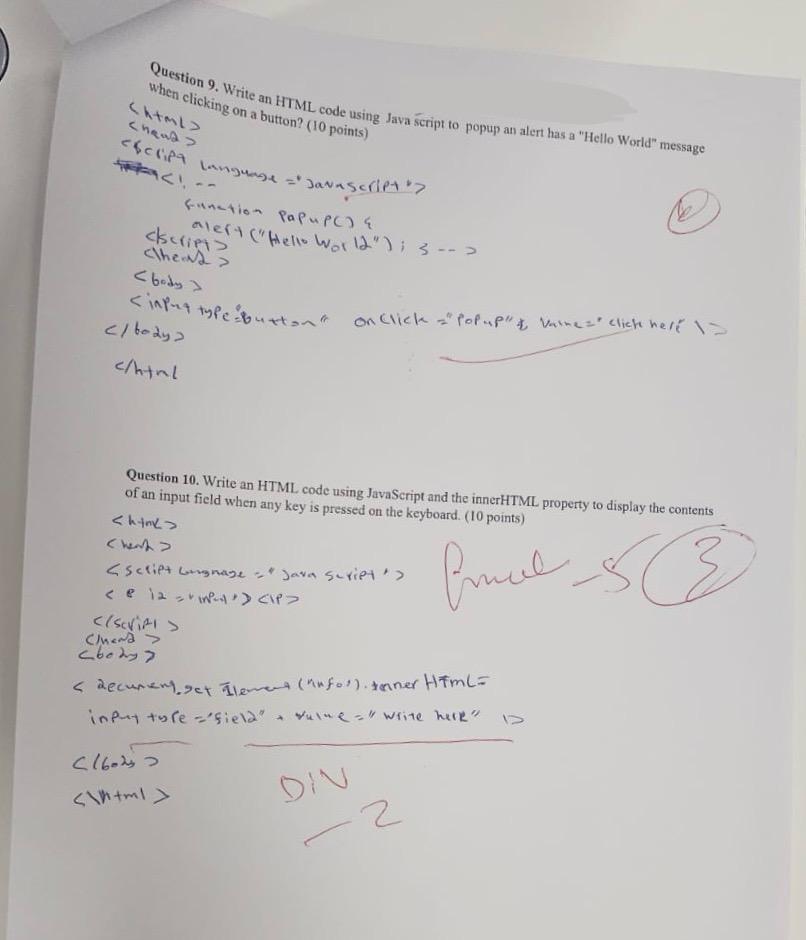 Question 9. Write an HTML code using Java script to popup an alert has a "Hello World" message
when clicking on a button? (10 points)
<html>
<head>
<script Language ="Javascript">
<!--
function PoPuP() {
alert ("Hello World"); } -->
<\script>
<\head>
<body>
<input type="button" onclick ="PoPuP" value=" click here" \>
</body>
</html
Question 10. Write an HTML code using JavaScript and the innerHTML property to display the contents
of an input field when any key is pressed on the keyboard. (10 points)
<html>
<head>
<script Language ="Java script">
-5 3
</script>
</head>
<body>
input type ="field" + value =" write here" />
</body>
<\html>
DIV
-2